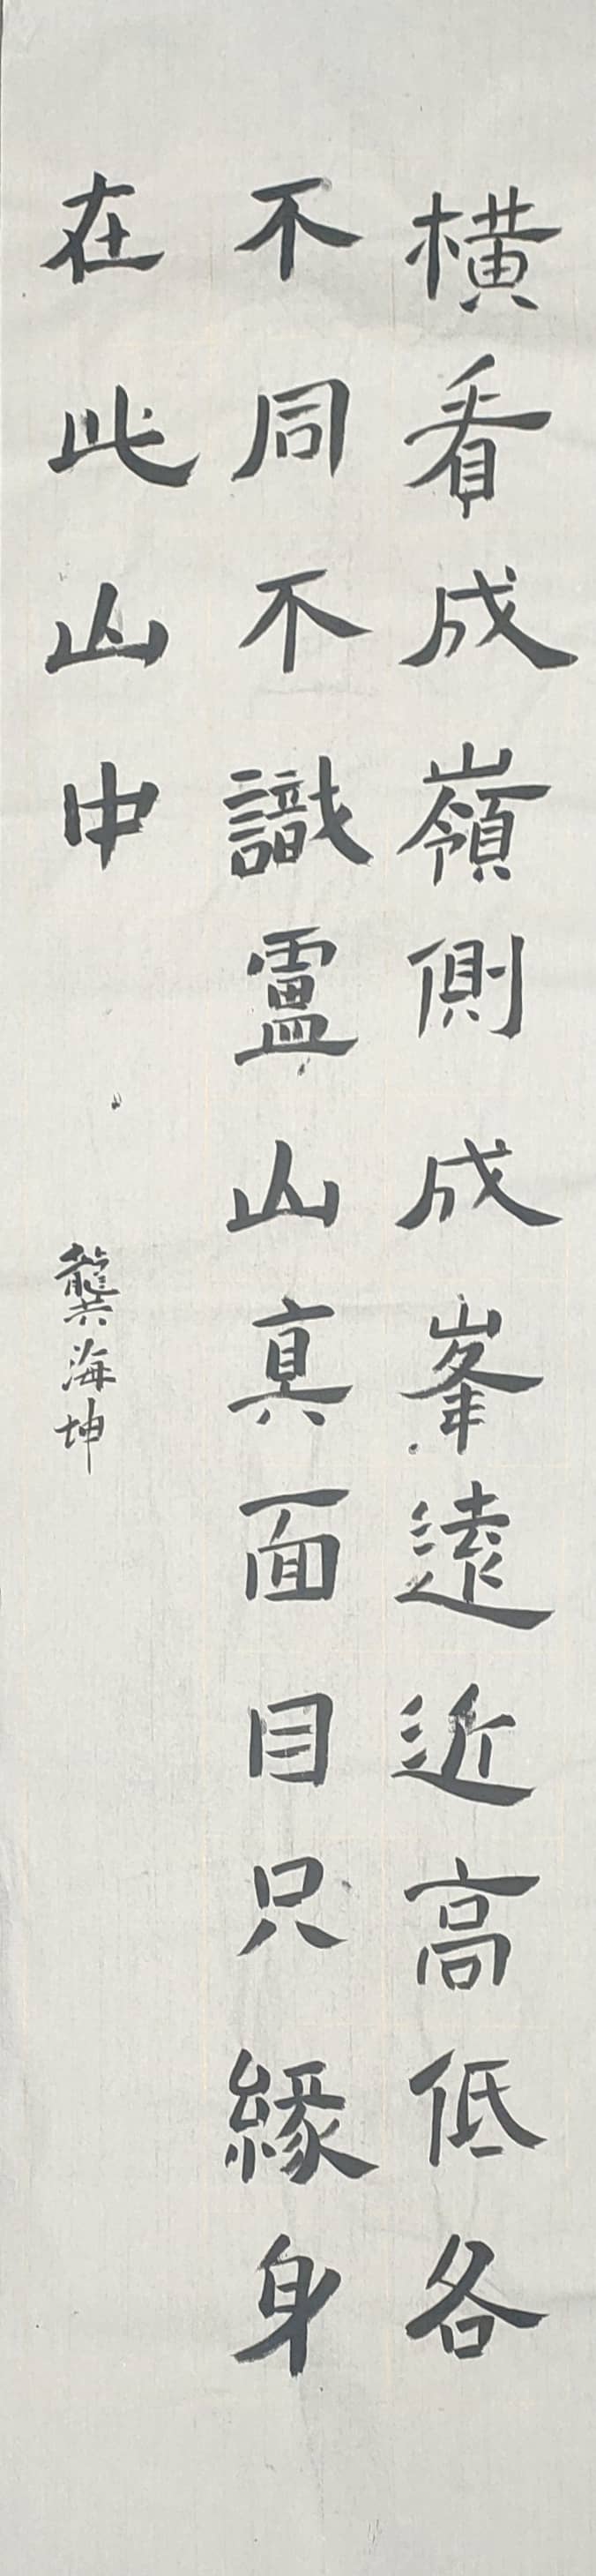 橫看成嶺側成峯遠近高低各
不同不識盧山真面目只緣身
在此山中
龔海坤